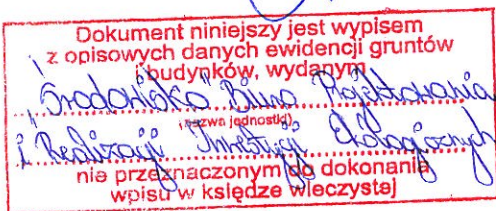 Dokument niniejszy jest wypisem
z opisowych danych ewidencji gruntów
i budynków, wydanym
"Środowisko" Biuro Projektowania
(nazwa jednostki)
i Realizacji Inwestycji Ekologicznych
nie przeznaczonym do dokonania
wpisu w księdze wieczystej